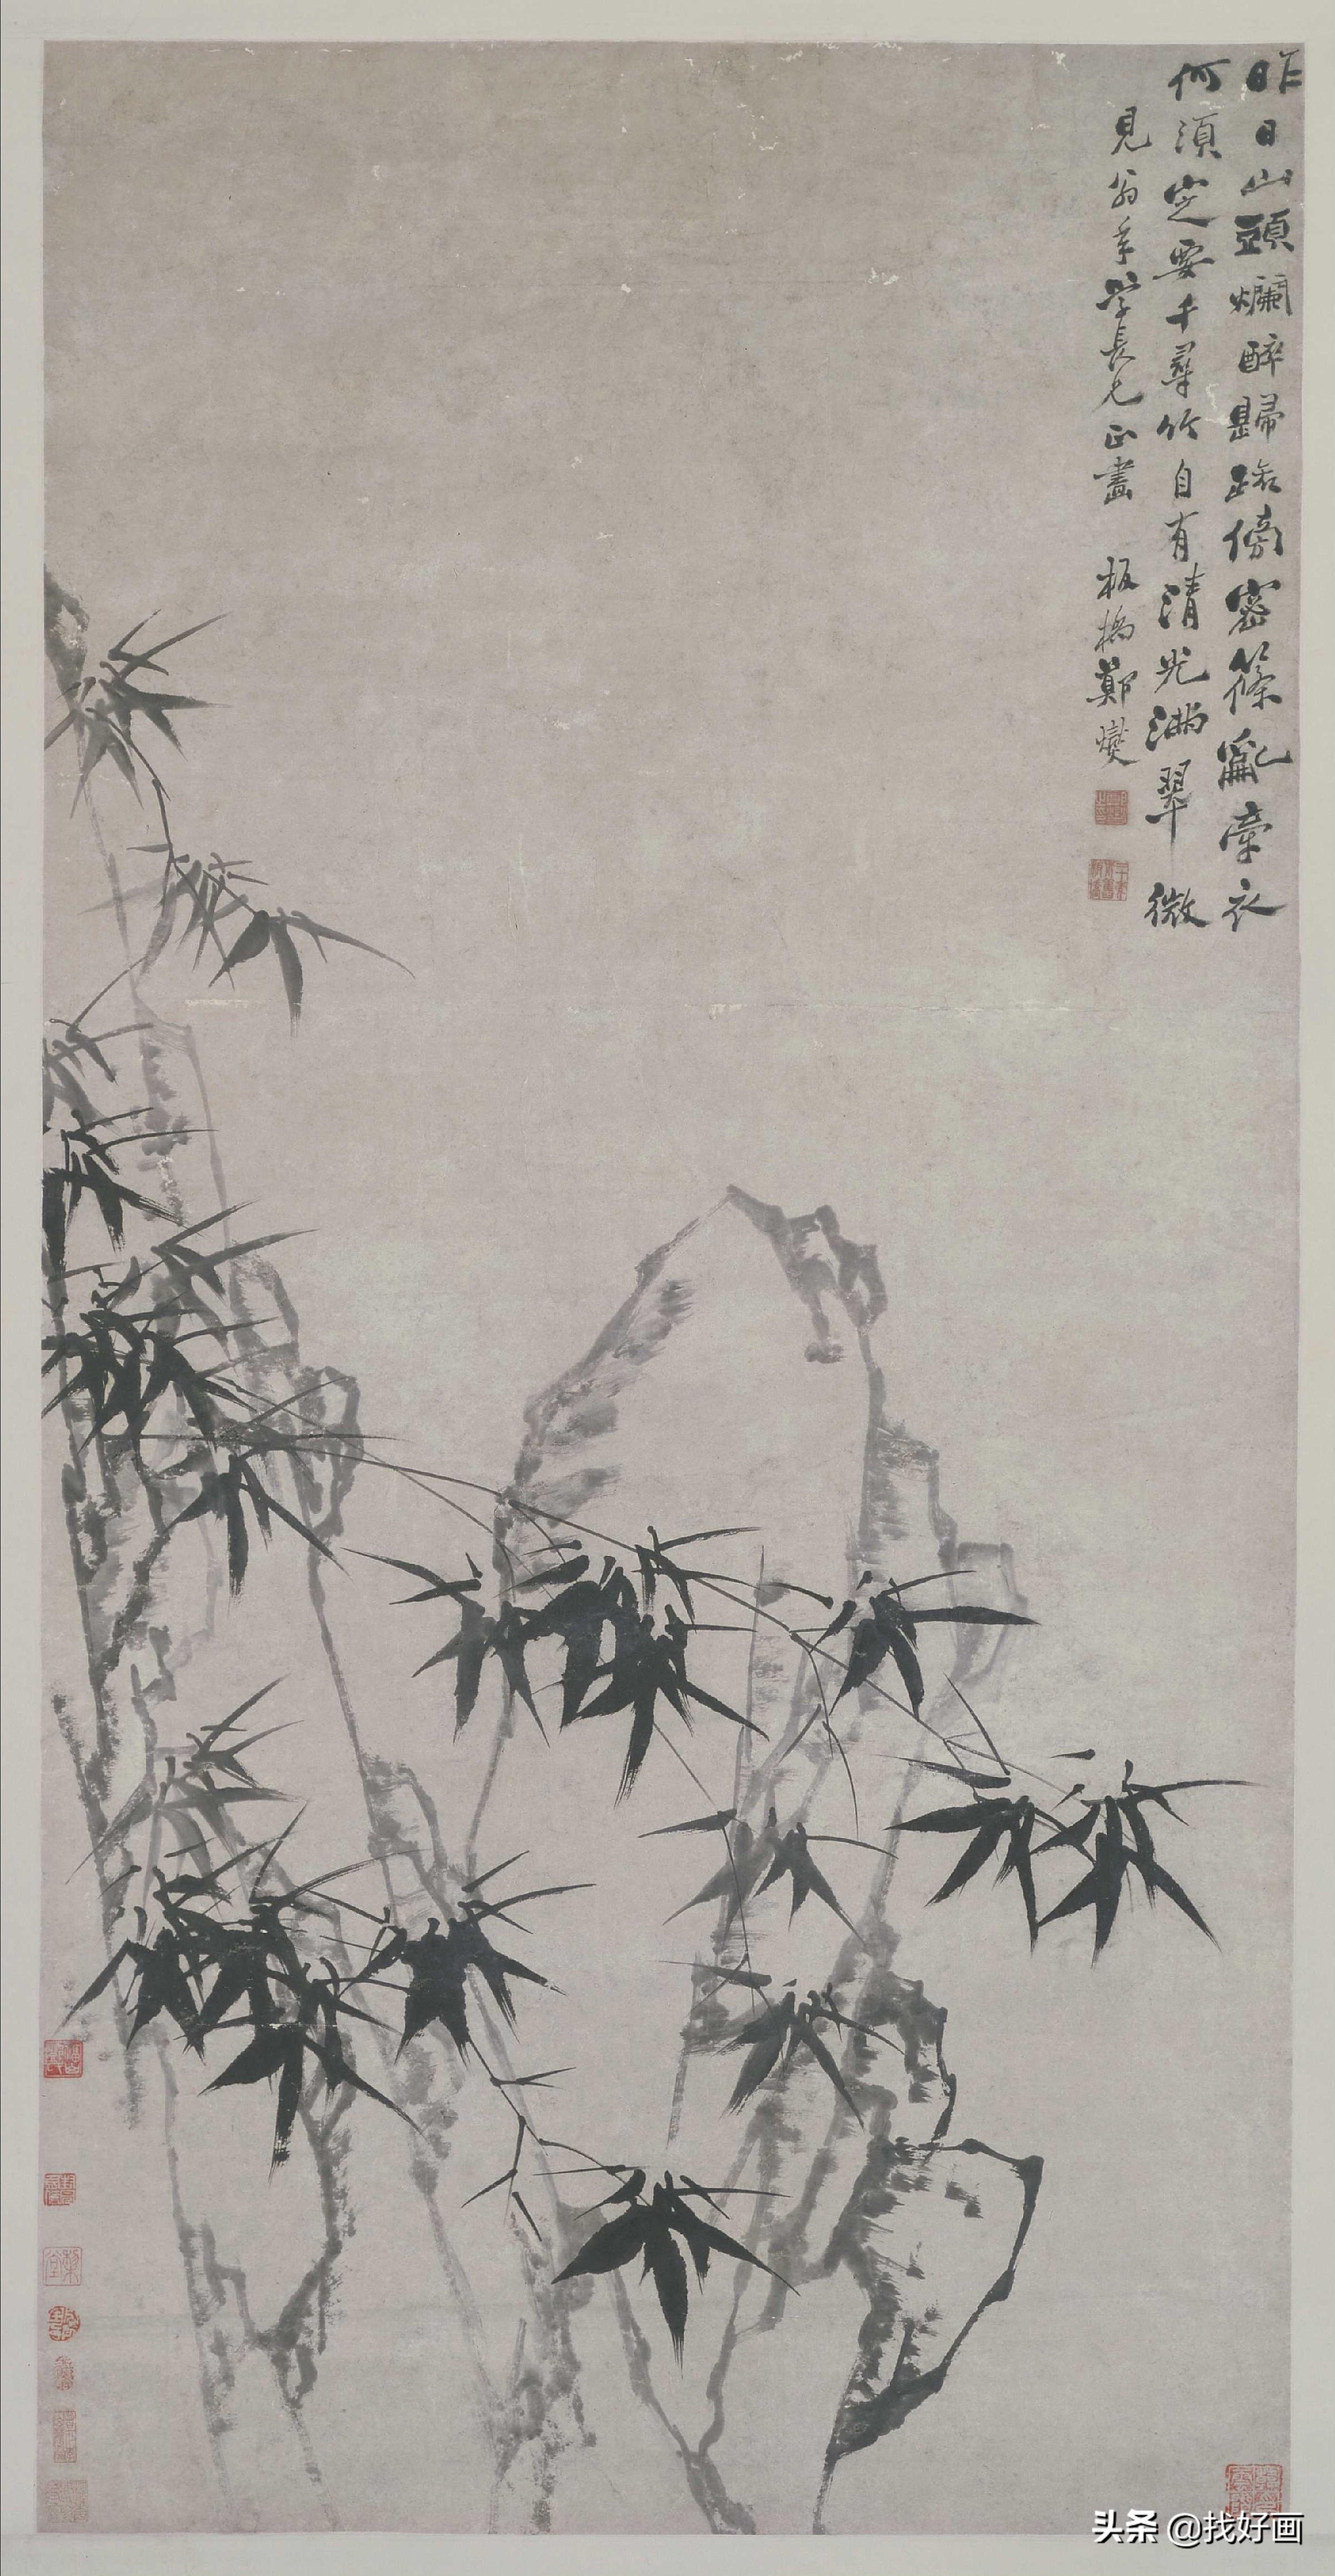 昨日山頭爛醉歸踏傍密篠亂牽衣
何須定要千尋竹自有清光滿翠微
見翁年学長兄正畫 板橋鄭燮
头条 @找好画